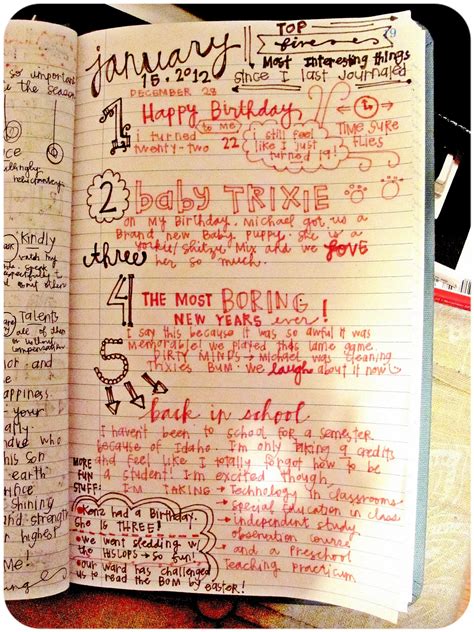 so important
the season
Kindly
Talents
all of them
or without
compensation
and
happiness.
your
this son
earth
and strength
Me!
79
january
15.2012
TOP
fives
Most Interesting things
since I last journaled
DECEMBER 28
1
Happy Birthday
to me
i turned
twenty-two 22
i still feel
like I just
turned 19!
TIME SURE
FLIES
2
baby TRIXIE
on my Birthday, Michael got us a
Brand new Baby Puppy. she is a
yorkie/Shitzu Mix and we LOVE
her so much.
three
4
THE MOST BORING
NEW YEARS ever!
I say this because it was so awful it was
memorable! we played this lame game
DIRTY MINDS → Michael was cleaning
TRIXIES BUM. we laugh about it now
5
back in school
I haven't been to school for a semester
because of Idaho. I'm only taking 9 credits
and feel like I totally forgot how to be
a student! I'm excited though,
I'm TAKING → Technology in classrooms
• Special Education in class
• independent study
observation course
• and a Preschool
Teaching practicum
MORE
FUN
STUFF!
• Kenz had a Birthday.
She IS THREE!
• we went sledding w/
the HISLOPS → so fun!
• our ward has challenged
us to read the BOM by easter!